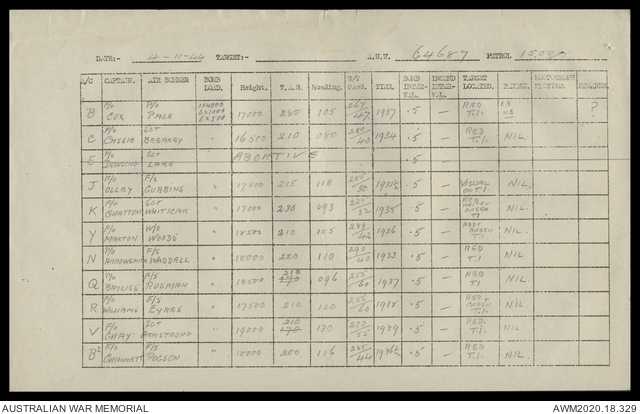 DATE:- 4-11-44 TARGET:- A.U.W. 64687 PETROL 1500
A/C CAPTAIN. AIR BOMBER BOMB LOAD. Height. T.A.S. Heading. W/V Used. TIME. BOMB INTERVAL. INCEND INTERVAL. TARGET LOCATED. PHOTOGRAPH PLOTTED. REMARKS.
B F/O COX P/O PAGE 1X4000 6X1000 6X500 17000 280 105 267/47 1937 .5 — RED T.I. ?
C F/O CASSIE SGT BREAKEY " 16500 210 080 280/40 1934 .5 — RED T.I. NIL.
E P/O DOWLING SGT LAKE ABORTIVE .5 —
J F/O OLLEY F/S GUBBINS " 17500 215 118 /30 1931½ .5 — VISUAL ON T.I. NIL.
K F/O GRATTON SGT WHITICAR " 17000 230 093 /32 1935 .5 — RED GREEN T.I NIL.
Y F/O MAXTON W/O WOODS " 18500 210 105 /42 1936 .5 — RED GREEN T.I. NIL.
N F/O ARROWSMITH F/S WADDELL " 18000 220 110 290/40 1933 .5 — RED T.I. NIL.
Q P/O BAYLISS F/S ROSMAN " 18500 210 096 /60 1937 .5 — RED T.I NIL.
R F/O WILLIAMS F/S EYARS " 17500 210 120 /60 1938 .5 — RED GREEN T.I. NIL
V F/O GRAY SGT ARMSTRONG " 19000 210 170 130 270/55 1939 .5 — RED. T.I. NIL.
B² F/O F/S POGSON " 18000 200 116 285/44 1936½ .5 — RED T.I. NIL.
AUSTRALIAN WAR MEMORIAL AWM2020.18.329